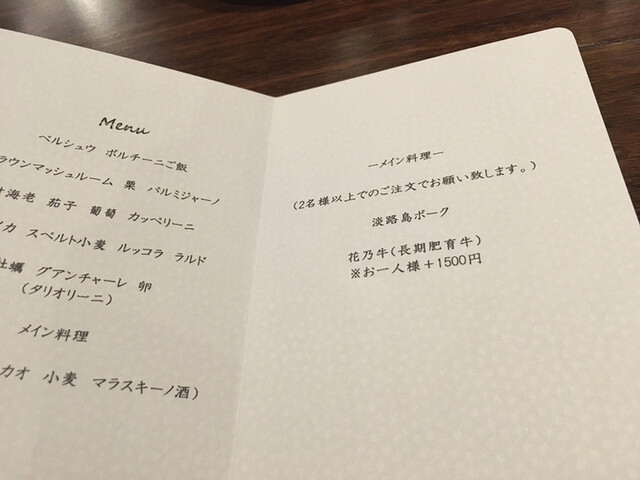 Menu
ペルシュウ ポルチーニご飯
ラウンマッシュルーム 栗 パルミジャーノ
海老 茄子 葡萄 カッペリーニ
イカ スペルト小麦 ルッコラ ラルド
牡蠣 グアンチャーレ 卵
(タリオリーニ)
メイン料理
カオ 小麦 マラスキーノ酒)
ーメイン料理ー
(2名様以上でのご注文でお願い致します。)
淡路島ポーク
花乃牛(長期肥育牛)
※お一人様+1500円